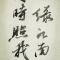 綠江南
時照我